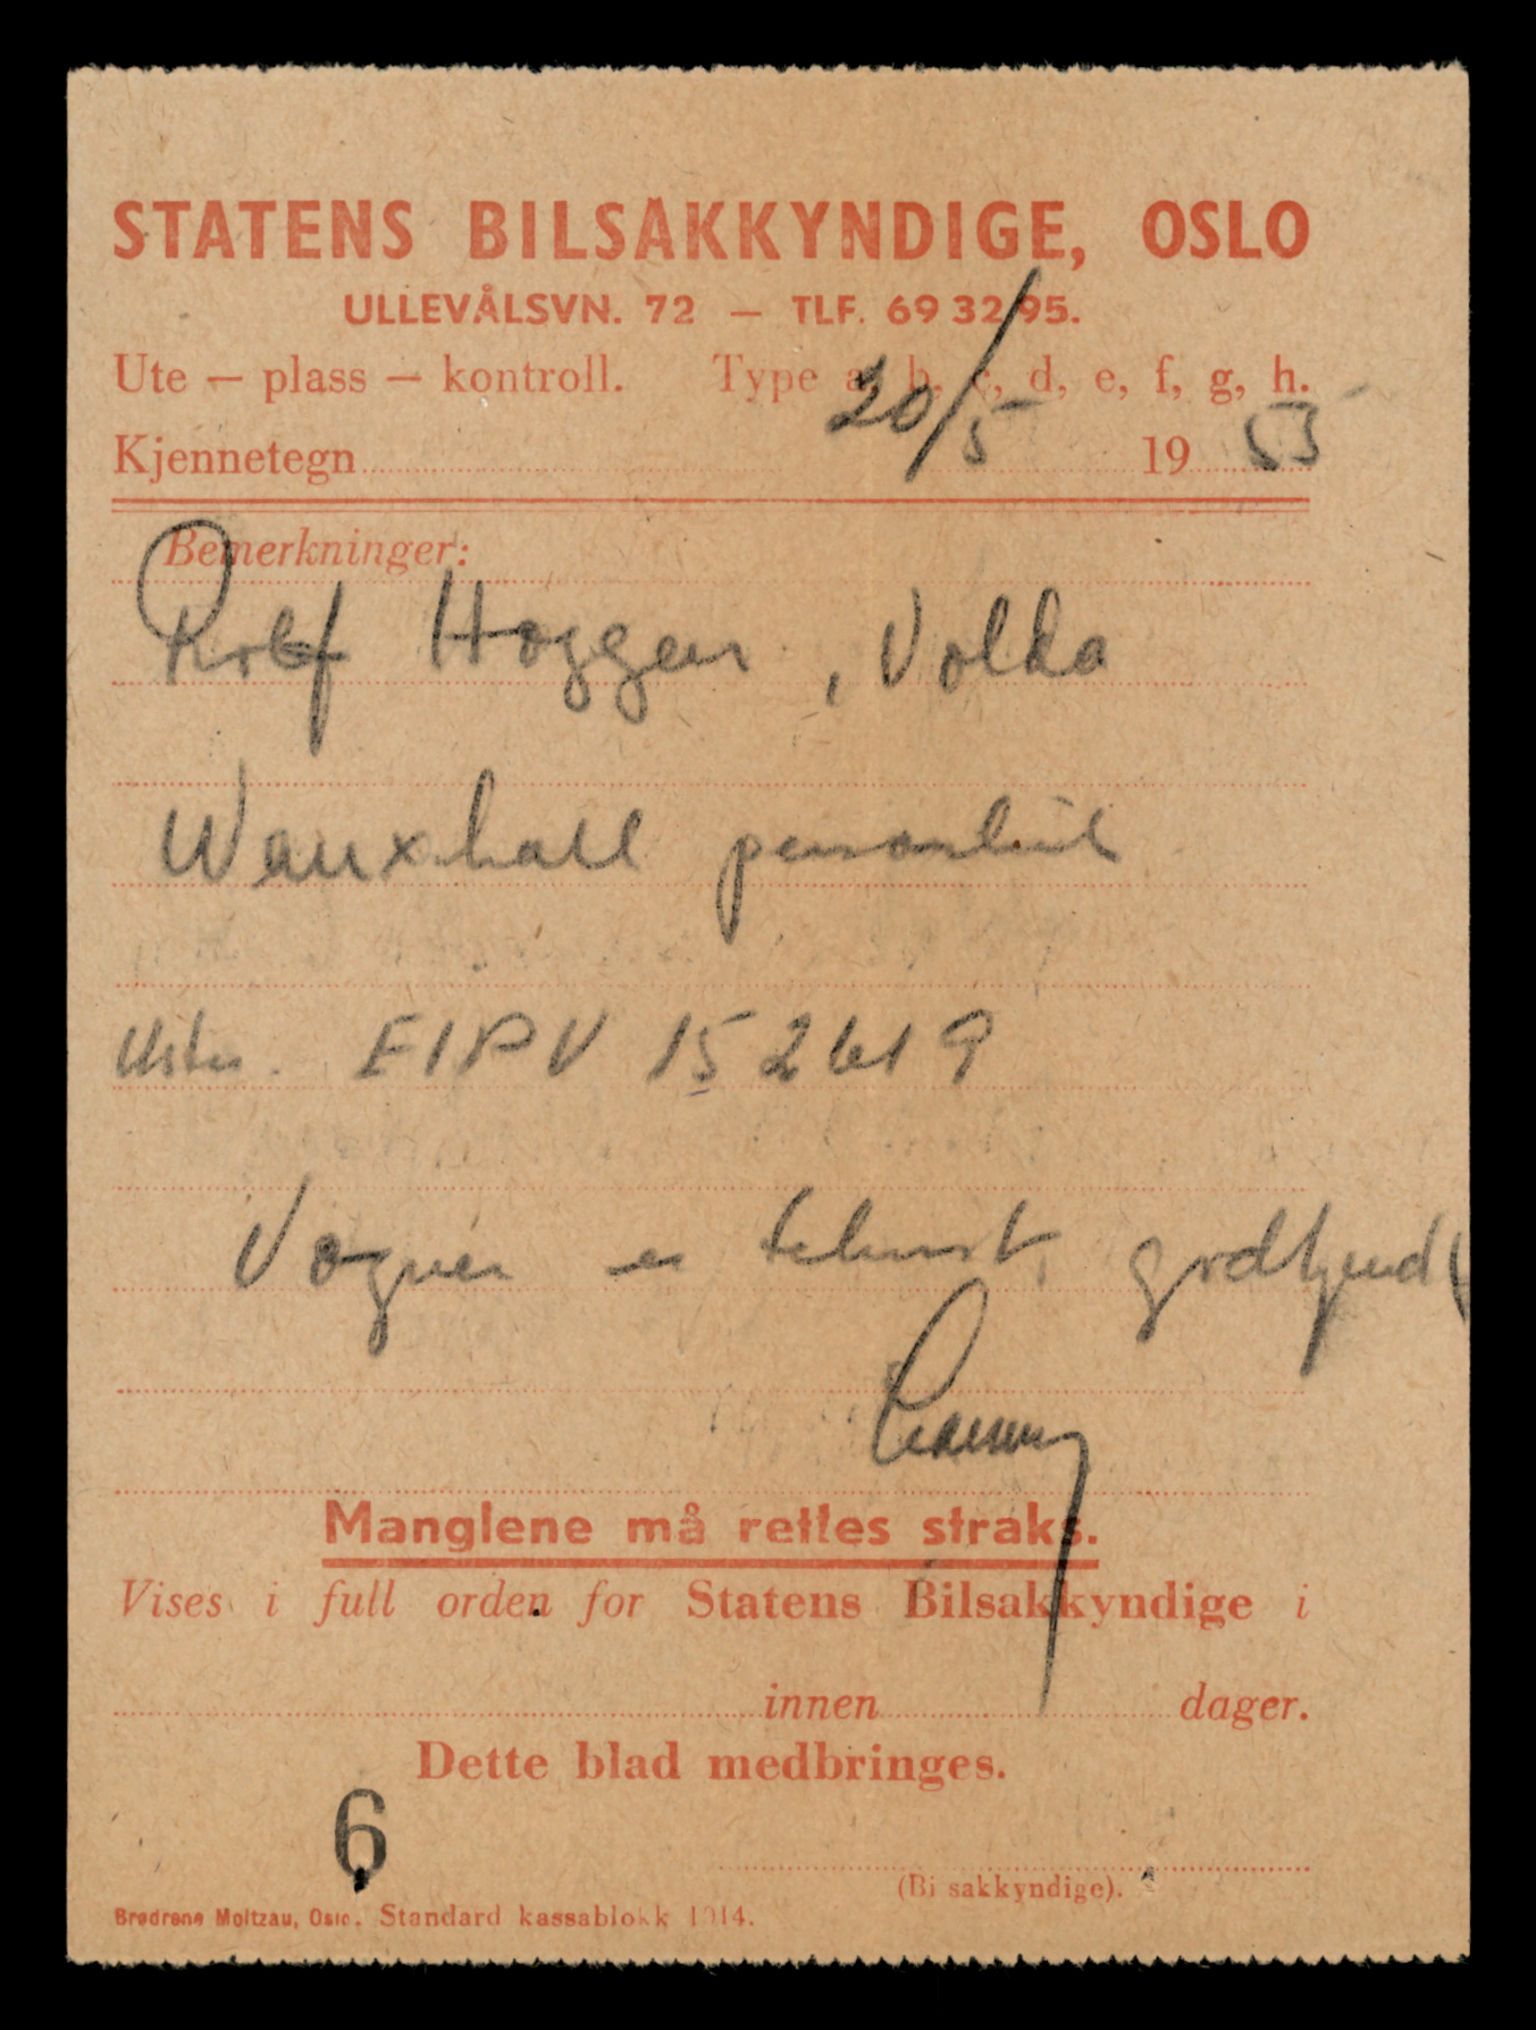 STATENS BILSAKKYNDIGE, OSLO
ULLEVÅLSVN. 72 — TLF. 69 32 95.
Ute — plass — kontroll. Type a, b, c, d, e, f, g, h.
Kjennetegn 20/5 19 53
Bemerkninger:
Rolf Hoggen, Volda
Wauxhall personbil
EIPV 152619
Vognen er teknisk godkjendt
Manglene må rettes straks.
Vises i full orden for Statens Bilsakkyndige i
innen dager.
Dette blad medbringes.
6
(Bi sakkyndige).
Brødrene Moltzau, Oslo. Standard kassablokk 1014.